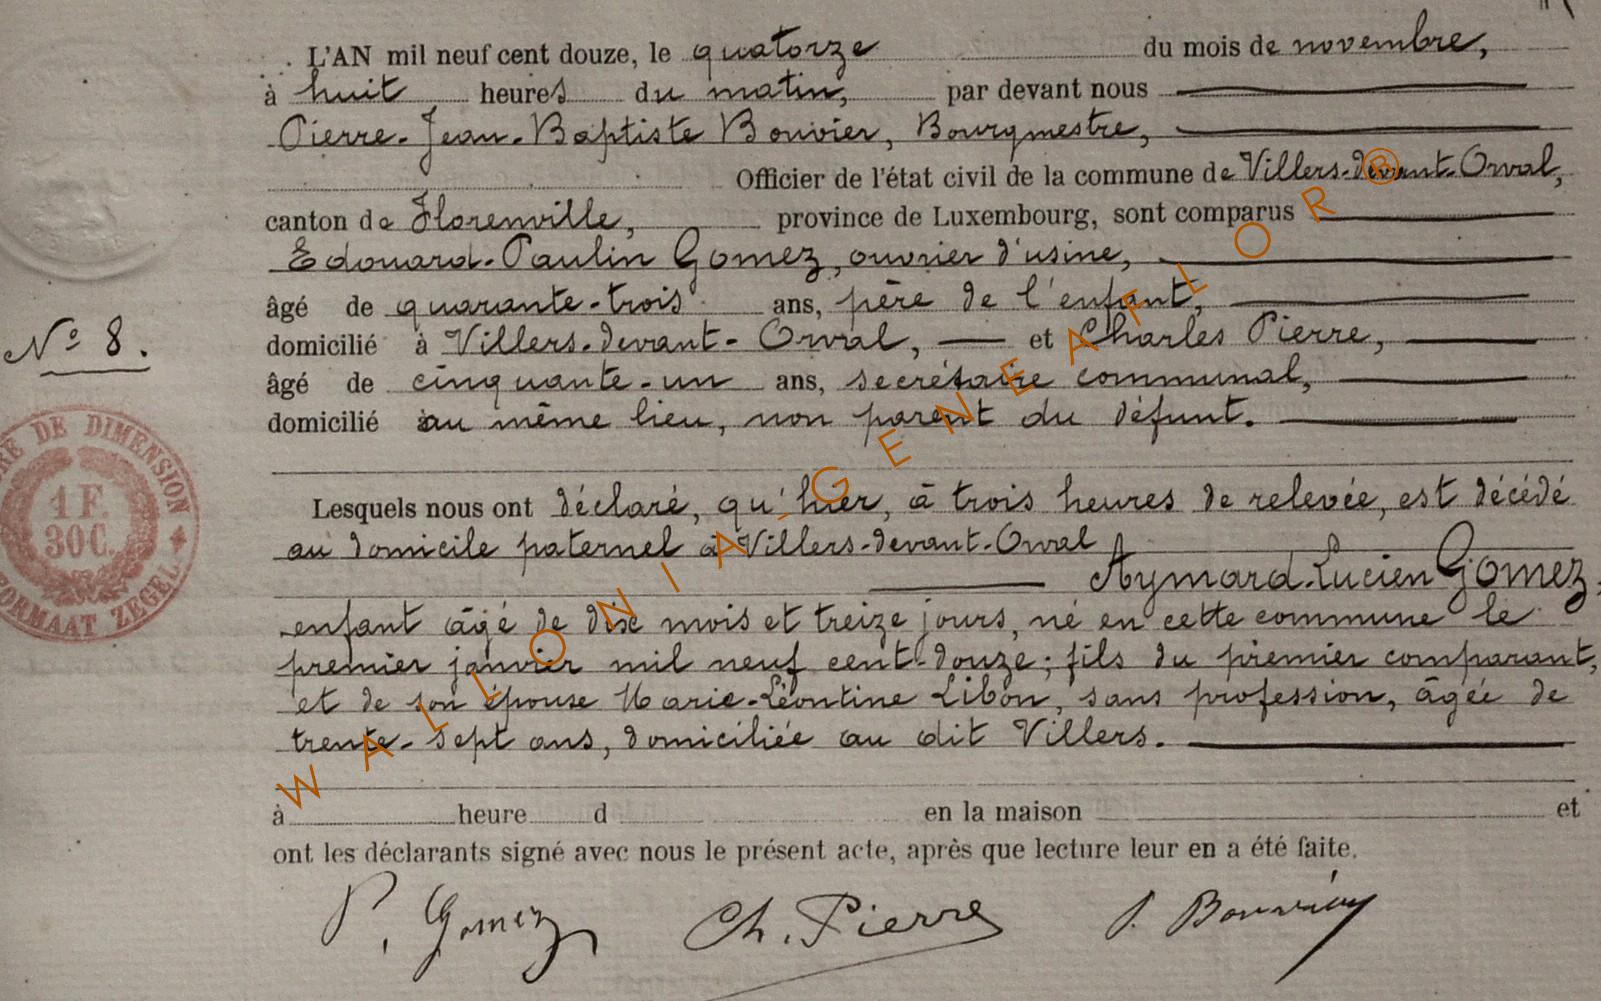 L'AN mil neuf cent douze, le quatorze du mois de novembre,
à huit heures du matin, par devant nous
Pierre-Jean-Baptiste Bouvier, Bourgmestre,
Officier de l'état civil de la commune de Villers-devant-Orval,
canton de Florenville, province de Luxembourg, sont comparus
Edouard-Paulin Gomez, ouvrier d'usine,
âgé de quarante-trois ans, père de l'enfant,
domicilié à Villers-devant-Orval, et Charles Pierre,
âgé de cinquante-un ans, secrétaire communal,
domicilié au même lieu, non parent du défunt.
N° 8.
DE DIMENSION
1 F.
30 C.
FORMAAT ZEGEL
Lesquels nous ont déclaré, qu'hier, à trois heures de relevée, est décédé
au domicile paternel à Villers-devant-Orval
Aymard-Lucien Gomez,
enfant âgé de dix mois et treize jours, né en cette commune le
premier janvier mil neuf cent douze; fils du premier comparant,
et de son épouse Marie-Léontine Libon, sans profession, âgée de
trente-sept ans, domiciliée au dit Villers.
à heure d en la maison et
ont les déclarants signé avec nous le présent acte, après que lecture leur en a été faite.
P. Gomez Ch. Pierre P. Bouvier
WALLONIA-GENEAFLOR®